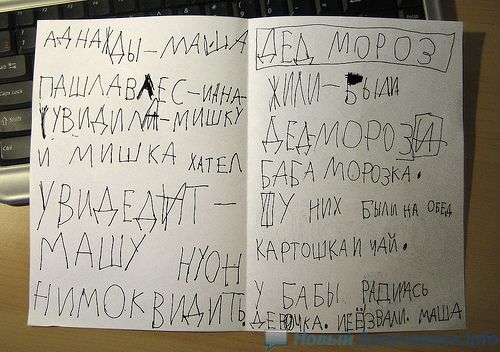 АДНАЖДЫ-МАША
ПАШЛАВЛЕС-ИАНА
УВИДИЛА-МИШКУ
И МИШКА ХАТЕЛ
УВИДЕДТАТ-
МАШУ НУОН
НИМОК ВИДИТЬ
ДЕД МОРОЗ
ЖИЛИ-БЫЛИ
ДЕДМОРОЗИ
БАБА МОРОЗКА.
У НИХ БЫЛИ НА ОБЕД
КАРТОШКА И ЧАЙ.
У БАБЫ РАДИЛАСЬ
ДЕВОЧКА. ИЕЁЗВАЛИ. МАША
Новый Документ.info